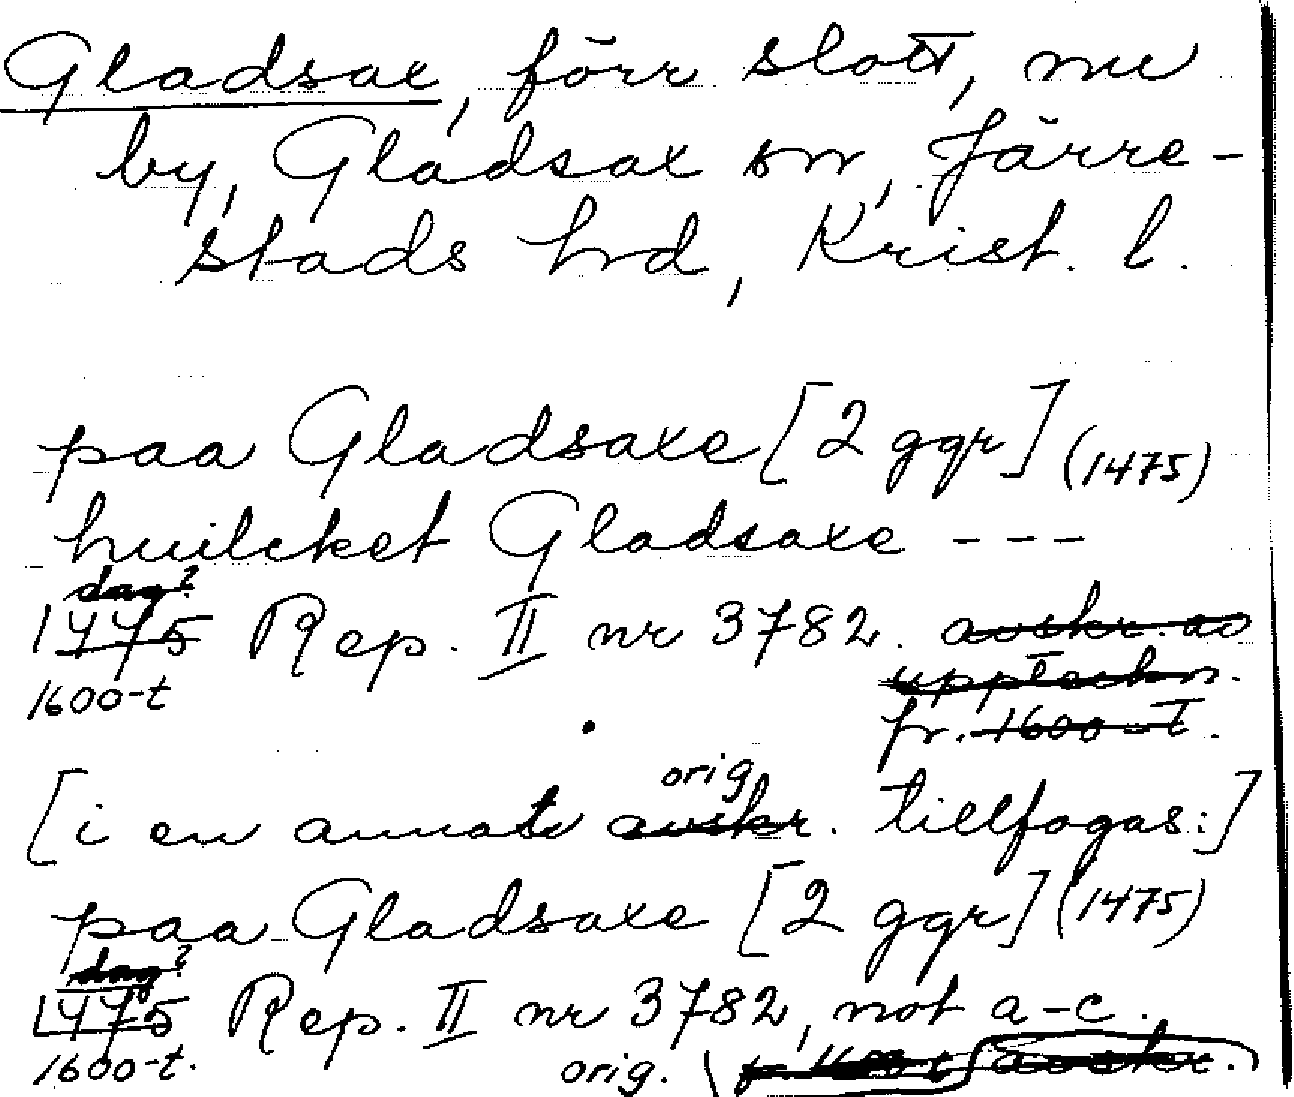 Gladsax, förr slott, nu
by, Gladsax sn, Järre-
stads hd, Krist. l.
paa Gladsaxe [2 ggr] (1475)
huilcket Gladsaxe ---
dag?
1475 Rep. II nr 3782. avskr. av
uppteckn.
1600-t
fr. 1600-t.
orig
[i en annat avskr. tillfogas:]
paa Gladsaxe [2 ggr] (1475)
dag?
1475 Rep. II nr 3782, not a-c.
1600-t. orig. fr. 1600-t avskr.